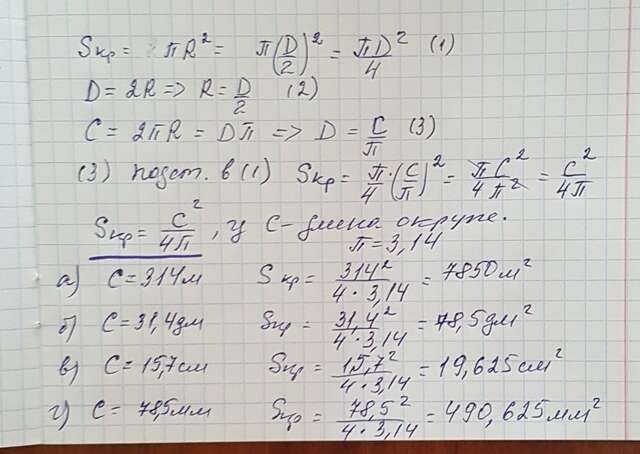 Sкр = πR² = π(D/2)² = πD²/4 (1)
D = 2R => R = D/2 (2)
C = 2πR = Dπ => D = C/π (3)
(3) подст. в (1) Sкр = π/4·(C/π)² = πC²/4π² = C²/4π
Sкр = C²/4π, C – длина окруж.
π = 3,14
а) C = 314м Sкр = 314²/4·3,14 = 7850м²
б) C = 31,4дм Sкр = 31,4²/4·3,14 = 78,5дм²
в) C = 15,7см Sкр = 15,7²/4·3,14 = 19,625см²
г) C = 78,5мм Sкр = 78,5²/4·3,14 = 490,625мм²